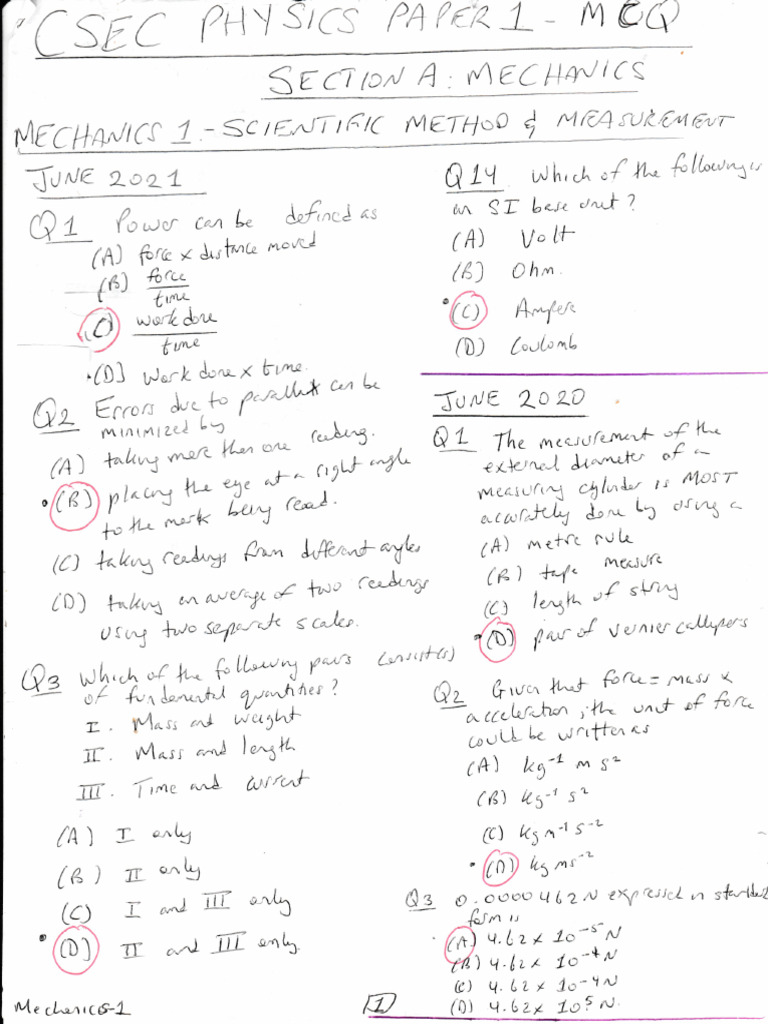 CSEC PHYSICS PAPER 1 - MCQ
SECTION A: MECHANICS
MECHANICS 1 - SCIENTIFIC METHOD & MEASUREMENT
JUNE 2021
Q1 Power can be defined as
(A) force x distance moved
(B) force
time
(C) work done
time
(D) Work done x time.
Q2 Errors due to parallax can be
minimized by
(A) taking more than one reading.
(B) placing the eye at a right angle
to the mark being read.
(C) taking readings from different angles
(D) taking an average of two readings
using two separate scales.
Q3 Which of the following pairs consist(s)
of fundamental quantities?
I. Mass and weight
II. Mass and length
III. Time and current
(A) I only
(B) II only
(C) I and III only
(D) II and III only.
Mechanics-1
Q14 Which of the following is
an SI base unit?
(A) Volt
(B) Ohm.
(C) Ampere
(D) Coulomb
JUNE 2020
Q1 The measurement of the
external diameter of a
measuring cylinder is MOST
accurately done by using a
(A) metre rule
(B) tape measure
(C) length of string
(D) pair of vernier callypers
Q2 Given that force = mass x
acceleration, the unit of force
could be written as
(A) kg⁻¹ m s²
(B) kg⁻¹ s²
(C) kg m⁻¹ s⁻²
(D) kg ms⁻²
Q3 0.0000462N expressed in standard
form is
(A) 4.62 x 10⁻⁵ N
(B) 4.62 x 10⁻⁴ N
(C) 4.62 x 10⁻⁴ N
(D) 4.62 x 10⁵ N.
1